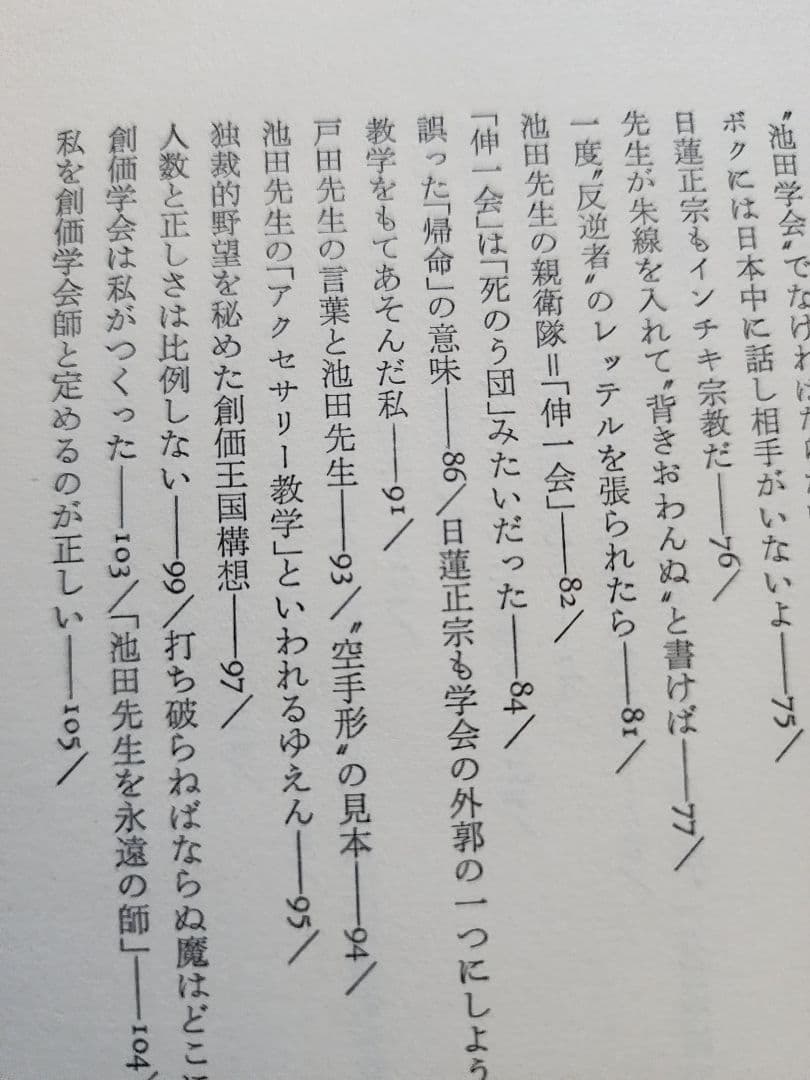 〝池田学会〟でなければ
ボクには日本中に話し相手がいないよ——75／
日蓮正宗もインチキ宗教だ——76／
先生が朱線を入れて〝背きおわんぬ〟と書けば——77／
一度〝反逆者〟のレッテルを張られたら——81／
池田先生の親衛隊＝「伸一会」——82／
「伸一会」は「死のう団」みたいだった——84／
誤った「帰命」の意味——86／日蓮正宗も学会の外郭の一つにしよう
教学をもてあそんだ私——91／
戸田先生の言葉と池田先生——93／〝空手形〟の見本——94／
池田先生の「アクセサリー教学」といわれるゆえん——95／
独裁的野望を秘めた創価王国構想——97／
人数と正しさは比例しない——99／打ち破らねばならぬ魔はどこに
創価学会は私がつくった——103／「池田先生を永遠の師」——104／
私を創価学会師と定めるのが正しい——105／